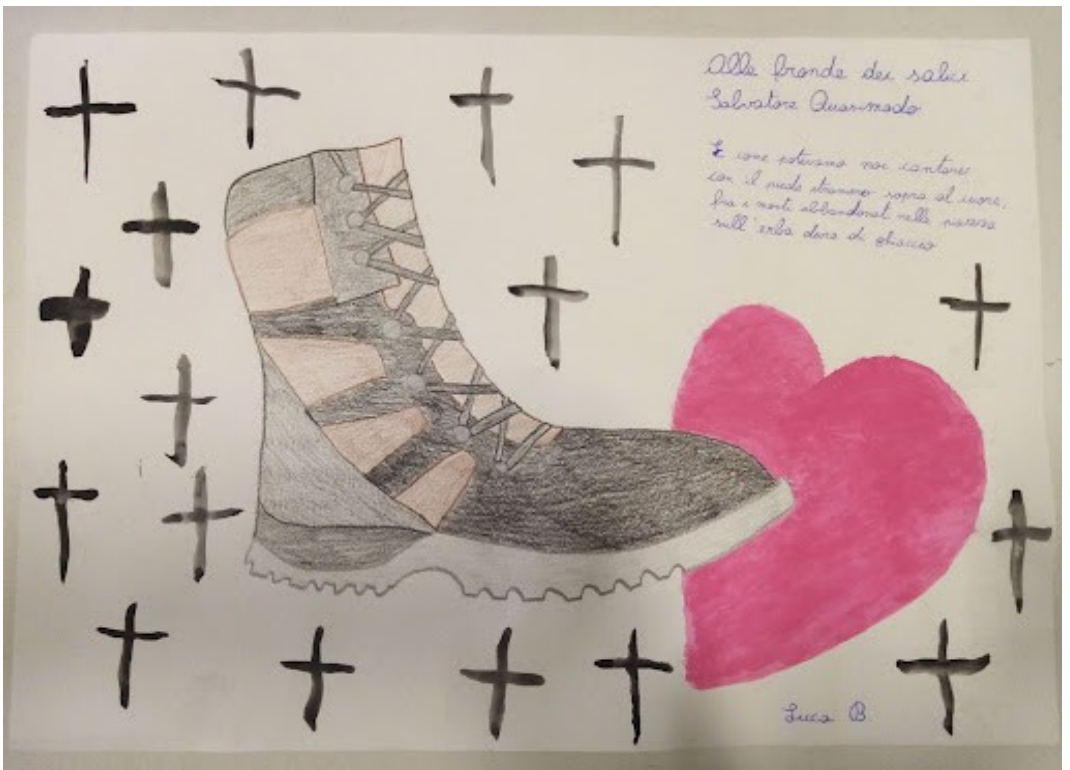 Alle fronde dei salici
Salvatore Quasimodo
E come potevamo noi cantare
con il piede straniero sopra al cuore,
fra i morti abbandonati nelle piazze
sull'erba dura di ghiaccio
Luca B.